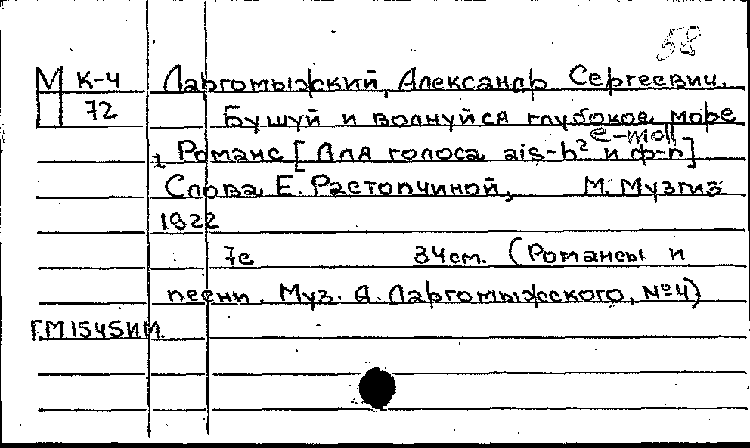 58
М К-4 Даргомыжский, Александр Сергеевич.
72 Бушуй и волнуйся глубокое море
e-moll
, Романс [Для голоса ais-h² и ф-п]
Слова Е. Растопчиной, М. Музгиз
1922
7с 34см. (Романсы и
песни. Муз. А. Даргомыжского, №4)
Г.М1545ИМ